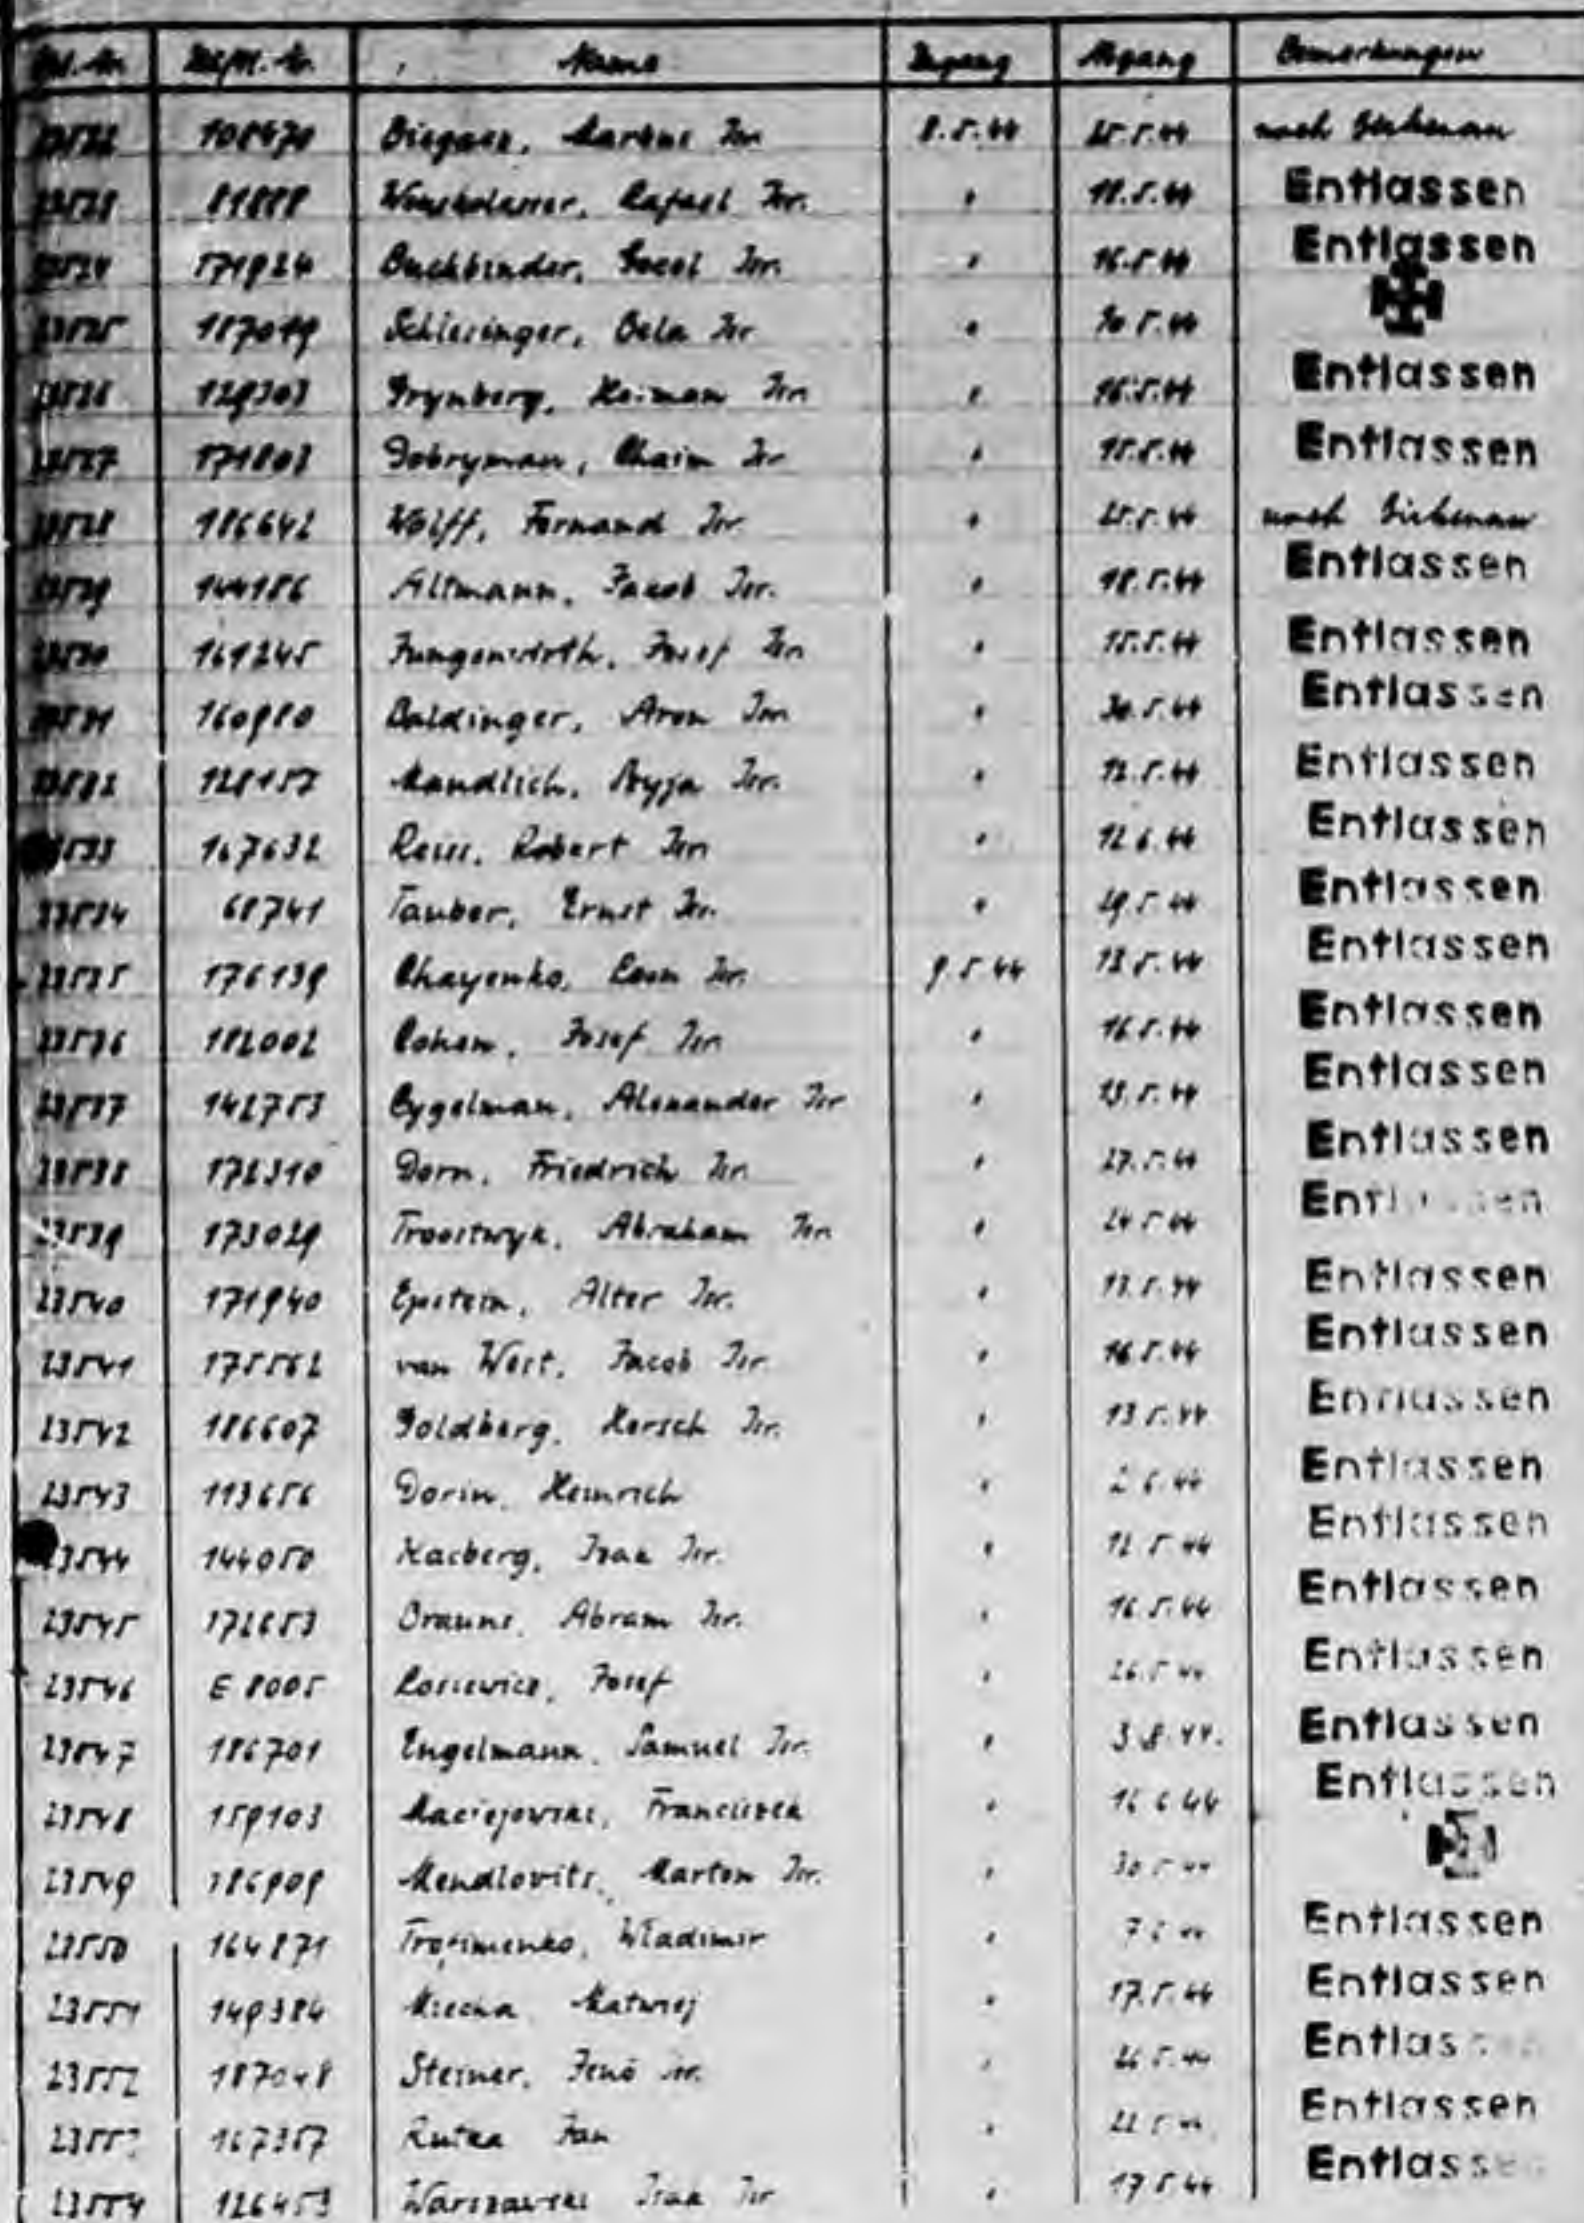 Name Zugang Abgang Bemerkungen
108470 Markus Isr. 8.5.44 25.5.44 nach Birkenau
Rafael Isr. " 18.5.44 Entlassen
171924 Buchbinder, Isr. " 16.5.44 Entlassen
23525 187019 Schlesinger, Bela Isr. " 30.5.44
23526 129303 Grynberg, Heiman Isr. " 16.5.44 Entlassen
23527 171803 Dobryman, Chaim Isr. " 15.5.44 Entlassen
23528 186642 Wolff, Fernand Isr. " 25.5.44 nach Birkenau
23529 144186 Altmann, Jacob Isr. " 18.5.44 Entlassen
23530 161245 Jungenwirth, Josef Isr. " 15.5.44 Entlassen
23531 160980 Baldinger, Aron Isr. " 30.5.44 Entlassen
23532 128157 Mandlich, Isr. " 12.5.44 Entlassen
23533 167632 Reiss, Robert Isr. " 12.6.44 Entlassen
23534 68741 Tauber, Ernst Isr. " 29.5.44 Entlassen
23535 176139 Chayenko, Leon Isr. 9.5.44 13.5.44 Entlassen
23536 182002 Cohen, Josef Isr. " 16.5.44 Entlassen
23537 142753 Cygelman, Alexander Isr. " 13.5.44 Entlassen
23538 172310 Dorn, Friedrich Isr. " 27.5.44 Entlassen
23539 173029 Troostwyk, Abraham Isr. " 24.5.44 Entlassen
23540 171940 Epstein, Alter Isr. " 13.5.44 Entlassen
23541 175562 van West, Jacob Isr. " 16.5.44 Entlassen
23542 186607 Goldberg, Hersch Isr. " 13.5.44 Entlassen
23543 113656 Dorin, Heinrich " 2.6.44 Entlassen
23544 144050 Kacberg, Isaak Isr. " 12.5.44 Entlassen
23545 172653 Brauns, Abram Isr. " 16.5.44 Entlassen
23546 E 8005 Josef " 26.5.44 Entlassen
23547 186701 Engelmann, Samuel Isr. " 3.8.44. Entlassen
23548 159103 Maciejowski, Franciszek " 16.6.44 Entlassen
23549 186909 Mendlovits, Marton Isr. " 30.5.44
23550 164871 Trofimenko, Wladimir " Entlassen
23551 149384 Matwiej " 17.5.44 Entlassen
23552 187048 Steiner, Jenö Isr. " 26.5.44 Entlassen
23553 167357 Rutka Jan " 22.5.44 Entlassen
23554 126453 Warszawski Isaak Isr. " 17.5.44 Entlassen